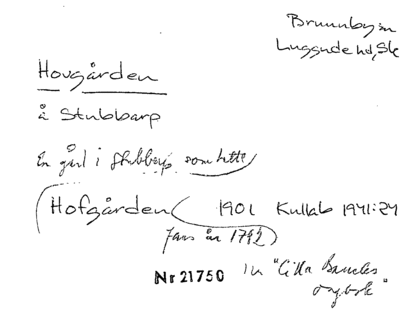 Brunnby sn
Luggude hd, Sk
Hovgården
å Stubbarp
En gård i Stubbarp som hette
Hofgården 1901 Kullab 1941:24
fans år 1792
Nr 21750 in "Cilla Banck's